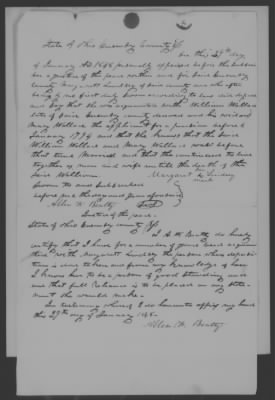 State of Ohio Guernsey County SS
On this 29th day
of January AD 1846 personally appeared before the subscri
ber a justice of the peace within and for said Guernsey
County Margaret Lindsey of said county who after
being by me first duly sworn according to law did depose
and say that she was acquainted with William Wallace
late of said Guernsey county deceased and his widow
Mary Wallace the applicant for a pention before
January 1794 and that she knows that the said
William Wallace and Mary Wallace was before
that time Married and that they continued to live
together as man and wife till the death of the
said William. Margaret Lindsey
mark
Sworn to and subscribed
before me the day and year aforesaid
Allen W. Beatty Seal
Justice of the peace.
State of Ohio Guernsey County SS
I A. W. Beatty do hereby
certify that I have for a number of years been acquain
ted with Margaret Lindsey the person whose deposi
tion is above taken and from my knowledge of her
I know her to be a person of good standing and
and that full reliance is to be placed on any state
ment she would make.
In testimony whereof I do hereunto affix my hand
this 29th day of January 1846.
Allen W. Beatty